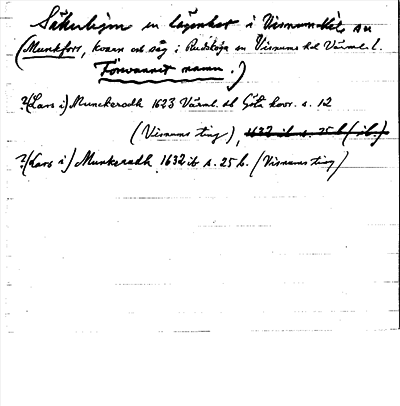 Säkerligen en lägenhet i Visnums-Kil su
(Munkforr, kvarn och såg i Rudskoga sn Visnums hd Värml. l.
Försvunnet namn.)
?(Lars i) Munckerodh 1623 Värml. hl Göta hovr. s. 12
(Visnums ting), 1632 ib s. 25 b (ib.)
?(Lars i) Munkeradh 1632 ib s. 25 b. (Visnums ting)